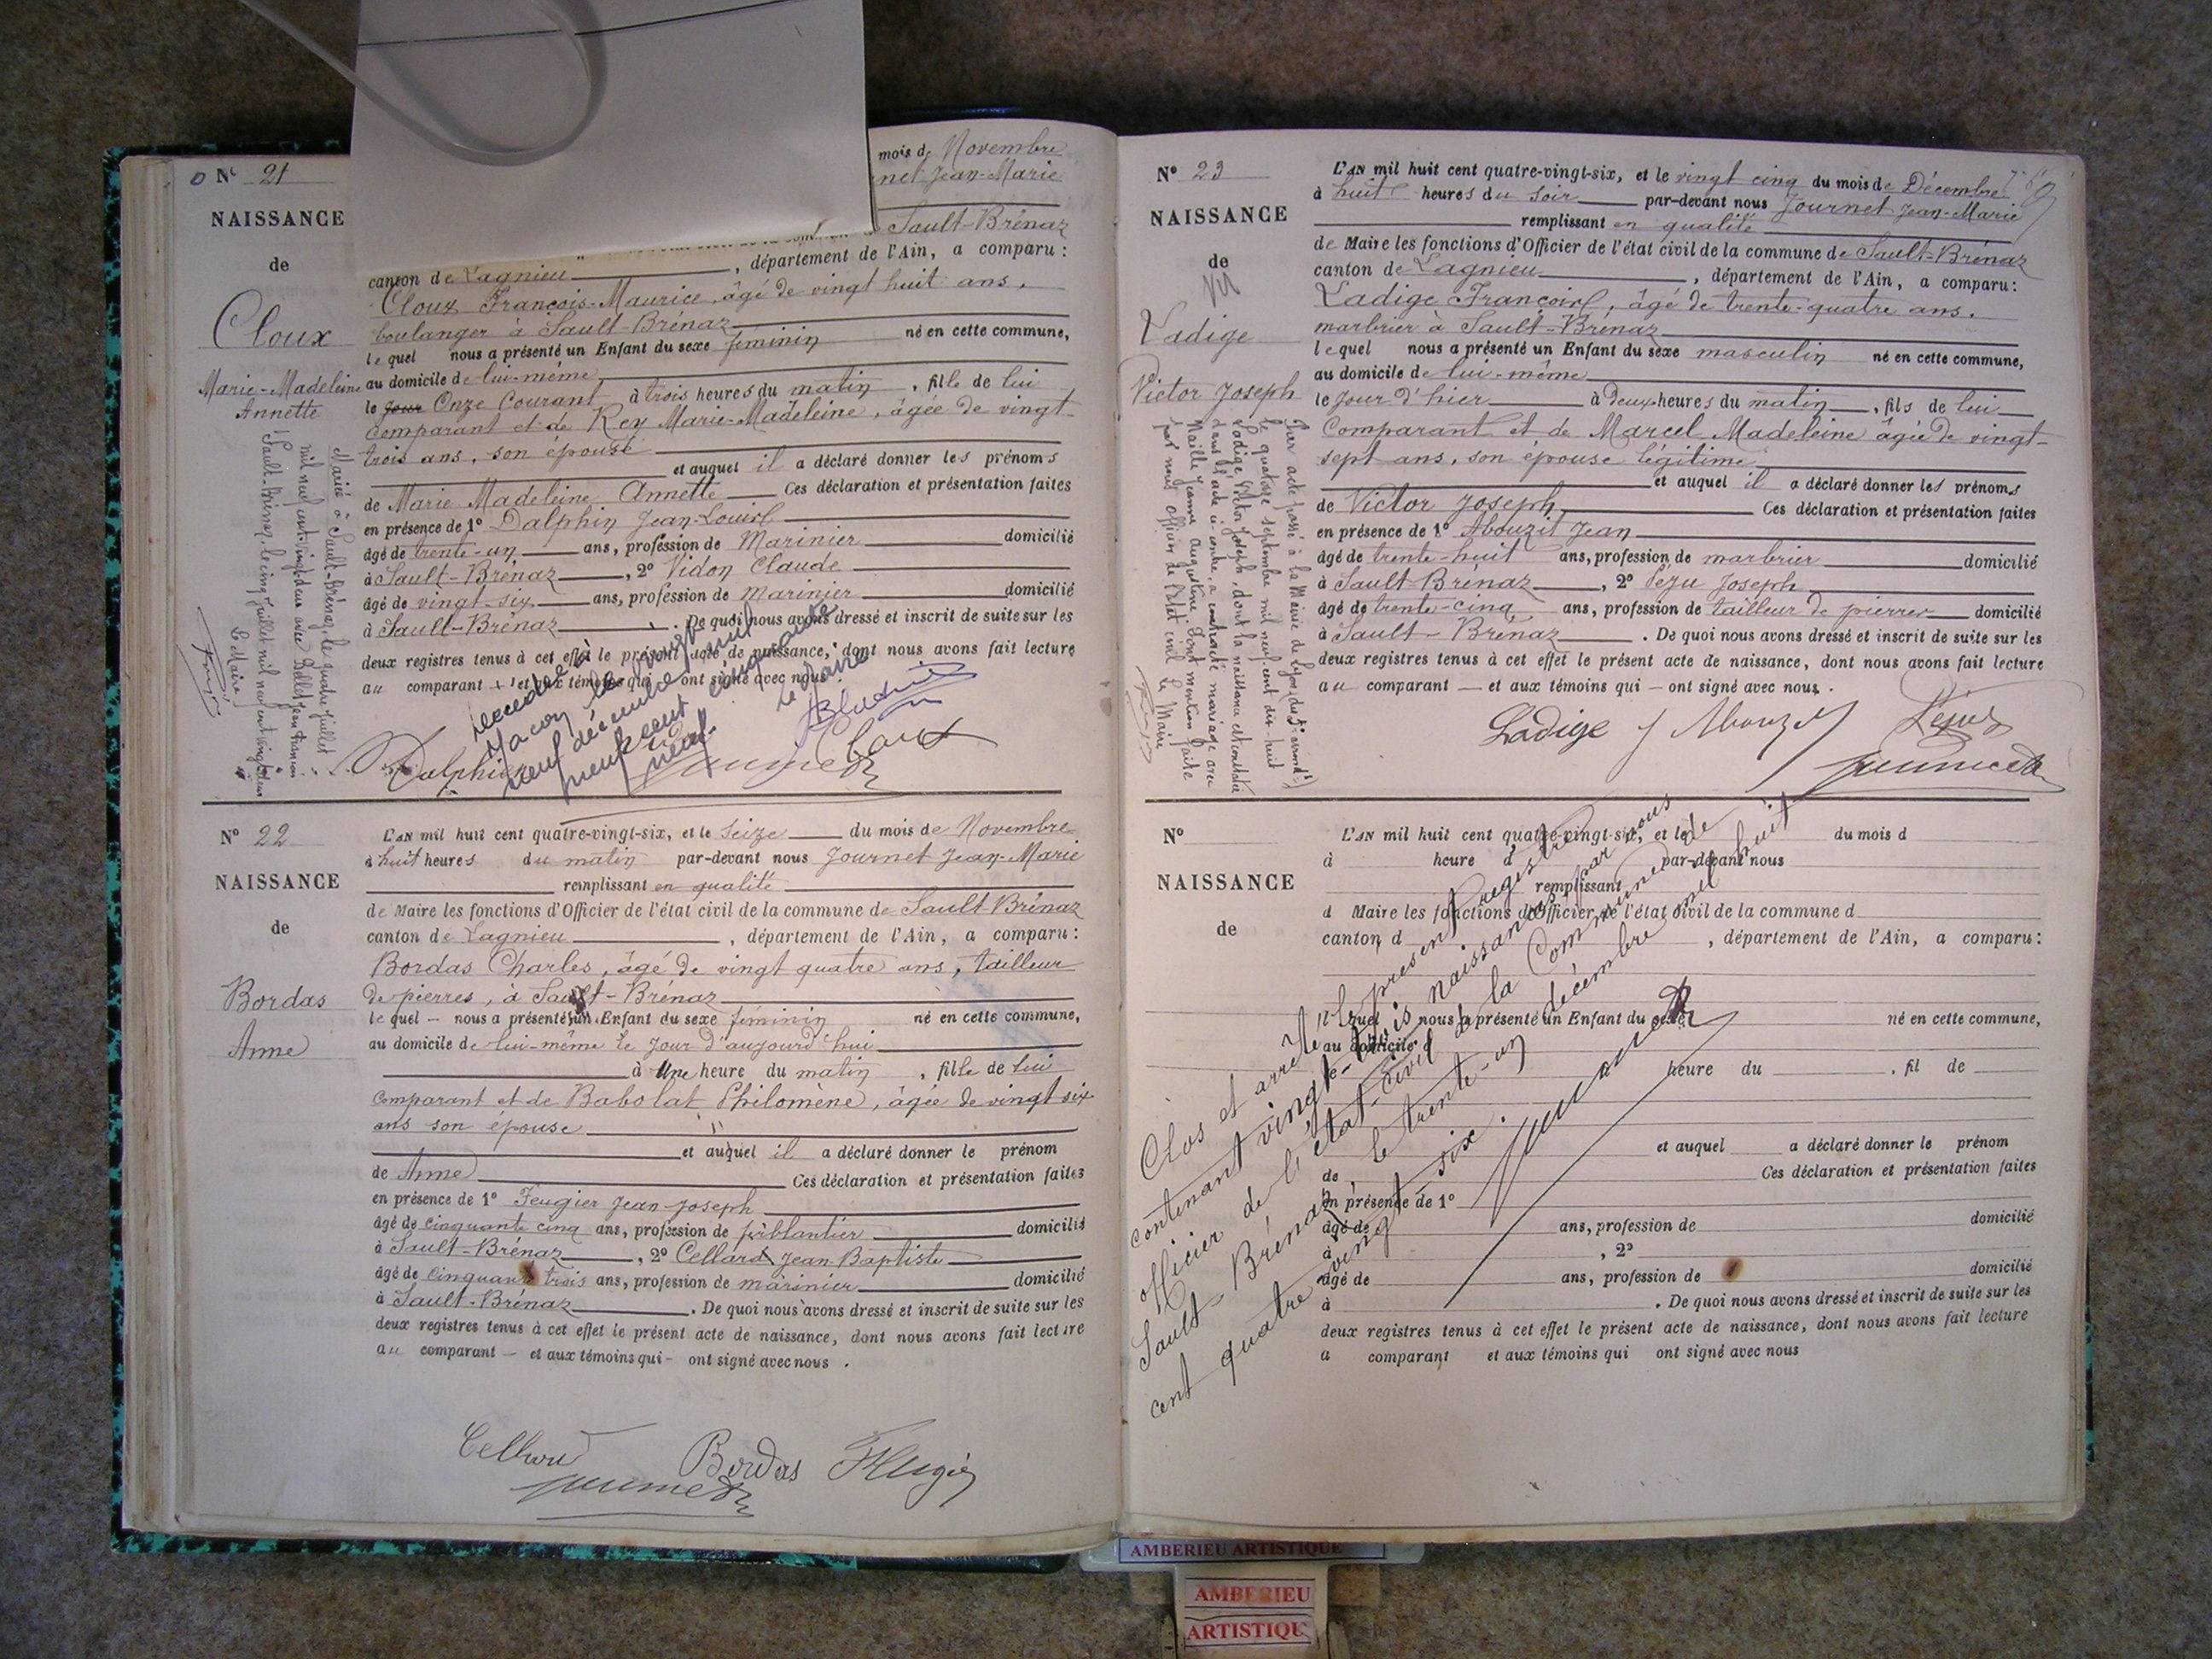 Nº 21
NAISSANCE
de
Cloux
Marie-Madeleine
Annette
Mariée à Sault-Brénaz, le quatre juillet
mil neuf cent vingt-deux avec
Sault-Brénaz, le cinq juillet mil neuf cent vingt-deux
Le Maire
mois de Novembre
net Jean-Marie
Sault-Brénaz
canton de Lagnieu, département de l'Ain, a comparu :
Cloux François-Maurice, âgé de vingt huit ans,
boulanger à Sault-Brénaz
lequel nous a présenté un Enfant du sexe féminin né en cette commune,
au domicile de lui-même
le jour Onze Courant à trois heures du matin, fille de lui
Comparant et de Rey Marie-Madeleine, âgée de vingt-
trois ans, son épouse
et auquel il a déclaré donner les prénoms
de Marie Madeleine Annette Ces déclaration et présentation faites
en présence de 1º Dalphin Jean-Louis
âgé de trente-un ans, profession de Marinier domicilié
à Sault-Brénaz, 2º Vidon Claude
âgé de vingt-six ans, profession de Marinier domicilié
à Sault-Brénaz. De quoi nous avons dressé et inscrit de suite sur les
deux registres tenus à cet effet le présent acte de naissance, dont nous avons fait lecture
au comparant et aux témoins qui ont signé avec nous.
décédée à
Macon le vingt
neuf décembre mil
neuf cent cinquante
neuf.
Le Maire
Dalphin
Cloux
Journet
Nº 22
NAISSANCE
de
Bordas
Anne
L'AN mil huit cent quatre-vingt-six, et le Seize du mois de Novembre
à huit heures du matin par-devant nous Journet Jean-Marie
remplissant en qualité
de Maire les fonctions d'Officier de l'état civil de la commune de Sault-Brénaz
canton de Lagnieu, département de l'Ain, a comparu :
Bordas Charles, âgé de vingt quatre ans, tailleur
de pierres, à Sault-Brénaz
lequel — nous a présenté un Enfant du sexe féminin né en cette commune,
au domicile de lui-même le jour d'aujourd'hui
à Une heure du matin, fille de lui
Comparant et de Babolat Philomène, âgée de vingt six
ans son épouse
et auquel il a déclaré donner le prénom
de Anne Ces déclaration et présentation faites
en présence de 1º Feugier Jean Joseph
âgé de cinquante cinq ans, profession de ferblantier domicilié
à Sault-Brénaz, 2º Cellard Jean Baptiste
âgé de cinquante trois ans, profession de marinier domicilié
à Sault-Brénaz. De quoi nous avons dressé et inscrit de suite sur les
deux registres tenus à cet effet le présent acte de naissance, dont nous avons fait lecture
au comparant — et aux témoins qui — ont signé avec nous.
Cellard Bordas Feugier
Journet
Nº 23
NAISSANCE
de
Ladige
Victor Joseph
Par acte passé à la Mairie de Lyon (du 3e arrondt)
le quatorze septembre mil neuf cent dix-huit
Ladige Victor Joseph, dont la naissance est constatée
dans l'acte ci-contre, a contracté mariage avec
Naille Jeanne Augustine Dont mention faite
par nous officier de l'état civil
Le Maire
L'AN mil huit cent quatre-vingt-six, et le vingt cinq du mois de Décembre
à huit heures du soir par-devant nous Journet Jean-Marie
remplissant en qualité
de Maire les fonctions d'Officier de l'état civil de la commune de Sault-Brénaz
canton de Lagnieu, département de l'Ain, a comparu :
Ladige François, âgé de trente-quatre ans,
marbrier à Sault-Brénaz
lequel nous a présenté un Enfant du sexe masculin né en cette commune,
au domicile de lui-même
le jour d'hier à deux heures du matin, fils de lui
Comparant et de Marcel Madeleine âgée de vingt-
sept ans, son épouse légitime
et auquel il a déclaré donner les prénoms
de Victor Joseph Ces déclaration et présentation faites
en présence de 1º Abouzit Jean
âgé de trente-huit ans, profession de marbrier domicilié
à Sault-Brénaz, 2º Péju Joseph
âgé de trente-cinq ans, profession de tailleur de pierres domicilié
à Sault-Brénaz. De quoi nous avons dressé et inscrit de suite sur les
deux registres tenus à cet effet le présent acte de naissance, dont nous avons fait lecture
au comparant — et aux témoins qui — ont signé avec nous.
Ladige J Abouzit Péju
Journet
Nº
NAISSANCE
de
L'AN mil huit cent quatre-vingt-six, et le du mois d
à heure d par-devant nous
remplissant
d Maire les fonctions d'Officier de l'état civil de la commune d
canton d, département de l'Ain, a comparu :
lequel nous a présenté un Enfant du sexe né en cette commune,
au domicile d
à heure du, fil de
et auquel a déclaré donner le prénom
de Ces déclaration et présentation faites
en présence de 1º
âgé de ans, profession de domicilié
à, 2º
âgé de ans, profession de domicilié
à. De quoi nous avons dressé et inscrit de suite sur les
deux registres tenus à cet effet le présent acte de naissance, dont nous avons fait lecture
a comparant et aux témoins qui ont signé avec nous
Clos et arrêté le présent registre
contenant vingt-trois naissances par nous
officier de l'état-civil de la Commune de
Sault-Brénaz le trente-un décembre mil huit
cent quatre vingt-six.
Journet
AMBERIEU ARTISTIQUE
AMBERIEU
ARTISTIQU